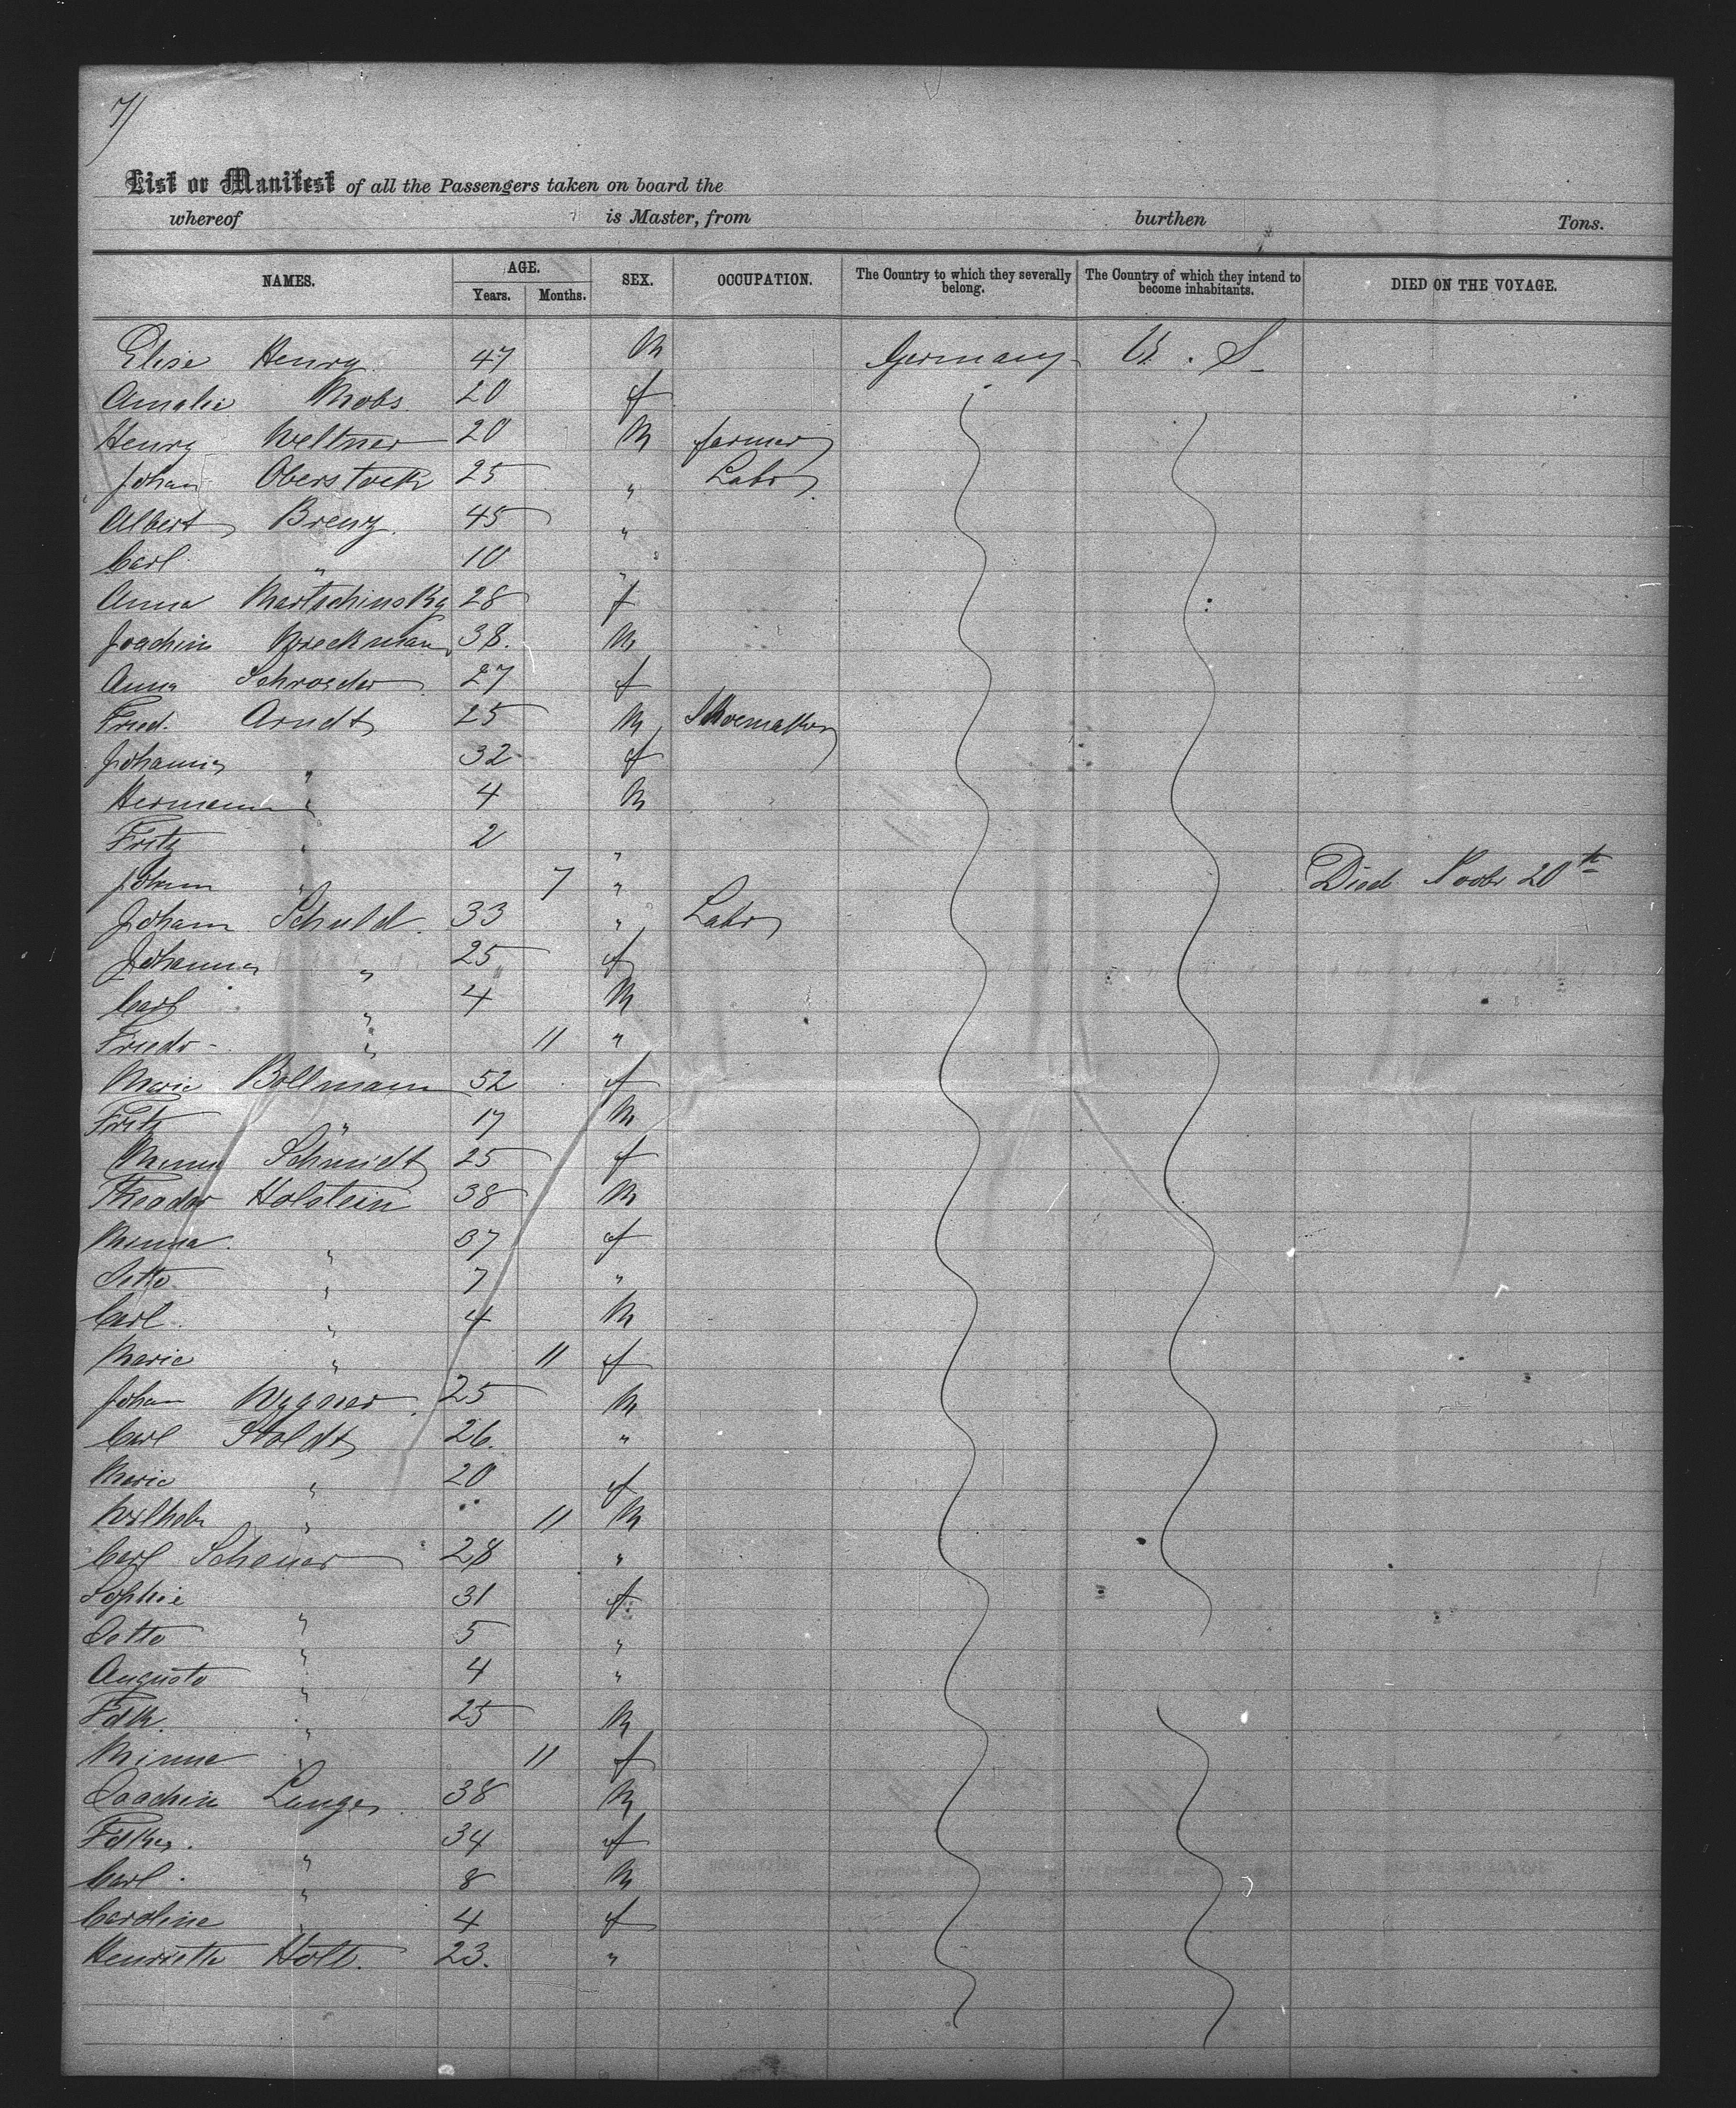 7/
List or Manifest of all the Passengers taken on board the
whereof is Master, from burthen Tons.
NAMES. AGE. Years. Months. SEX. OCCUPATION. The Country to which they severally belong. The Country of which they intend to become inhabitants. DIED ON THE VOYAGE.
Elise Henry 47 M Germany U. S.
Amalie Mobs 20 f
Henry Weltner 20 M farmer
Johan Oberstock 25 " Labr
Albert Brenz 45 "
Carl " 10 "
Anna Martschinsky 28 f
Joachim Wreckman 38. M
Anna Schroeder 27 f
Fried. Arndt 25 M Shoemaker
Johanna " 32 f
Hermann " 4 M
Fritz " 2 "
Johan " 7 " Died Novbr 20th
Johann Schuld. 33 " Labr
Johanna " 25 f
Carl " 4 M
Friedr - " 11 "
Marie Bollmann 52 f
Fritz " 17 M
Minna Schmidt 25 f
Theodor Holstein 38 M
Minna " 37 f
Otto " 7 "
Carl " 4 M
Marie " 11 f
Johan Wagner 25 M
Carl Stoldt 26. "
Marie " 20 f
Wilhelm " 11 M
Carl Scheuer 28 "
Sophie " 31 f.
Otto " 5 "
Auguste " 4 "
Fdk. " 25 M
Minna " 11 f
Joachim Lange 38 M
Fdke. " 34 f
Carl " 8 M
Caroline " 4 f
Henriette Holl. 23. "